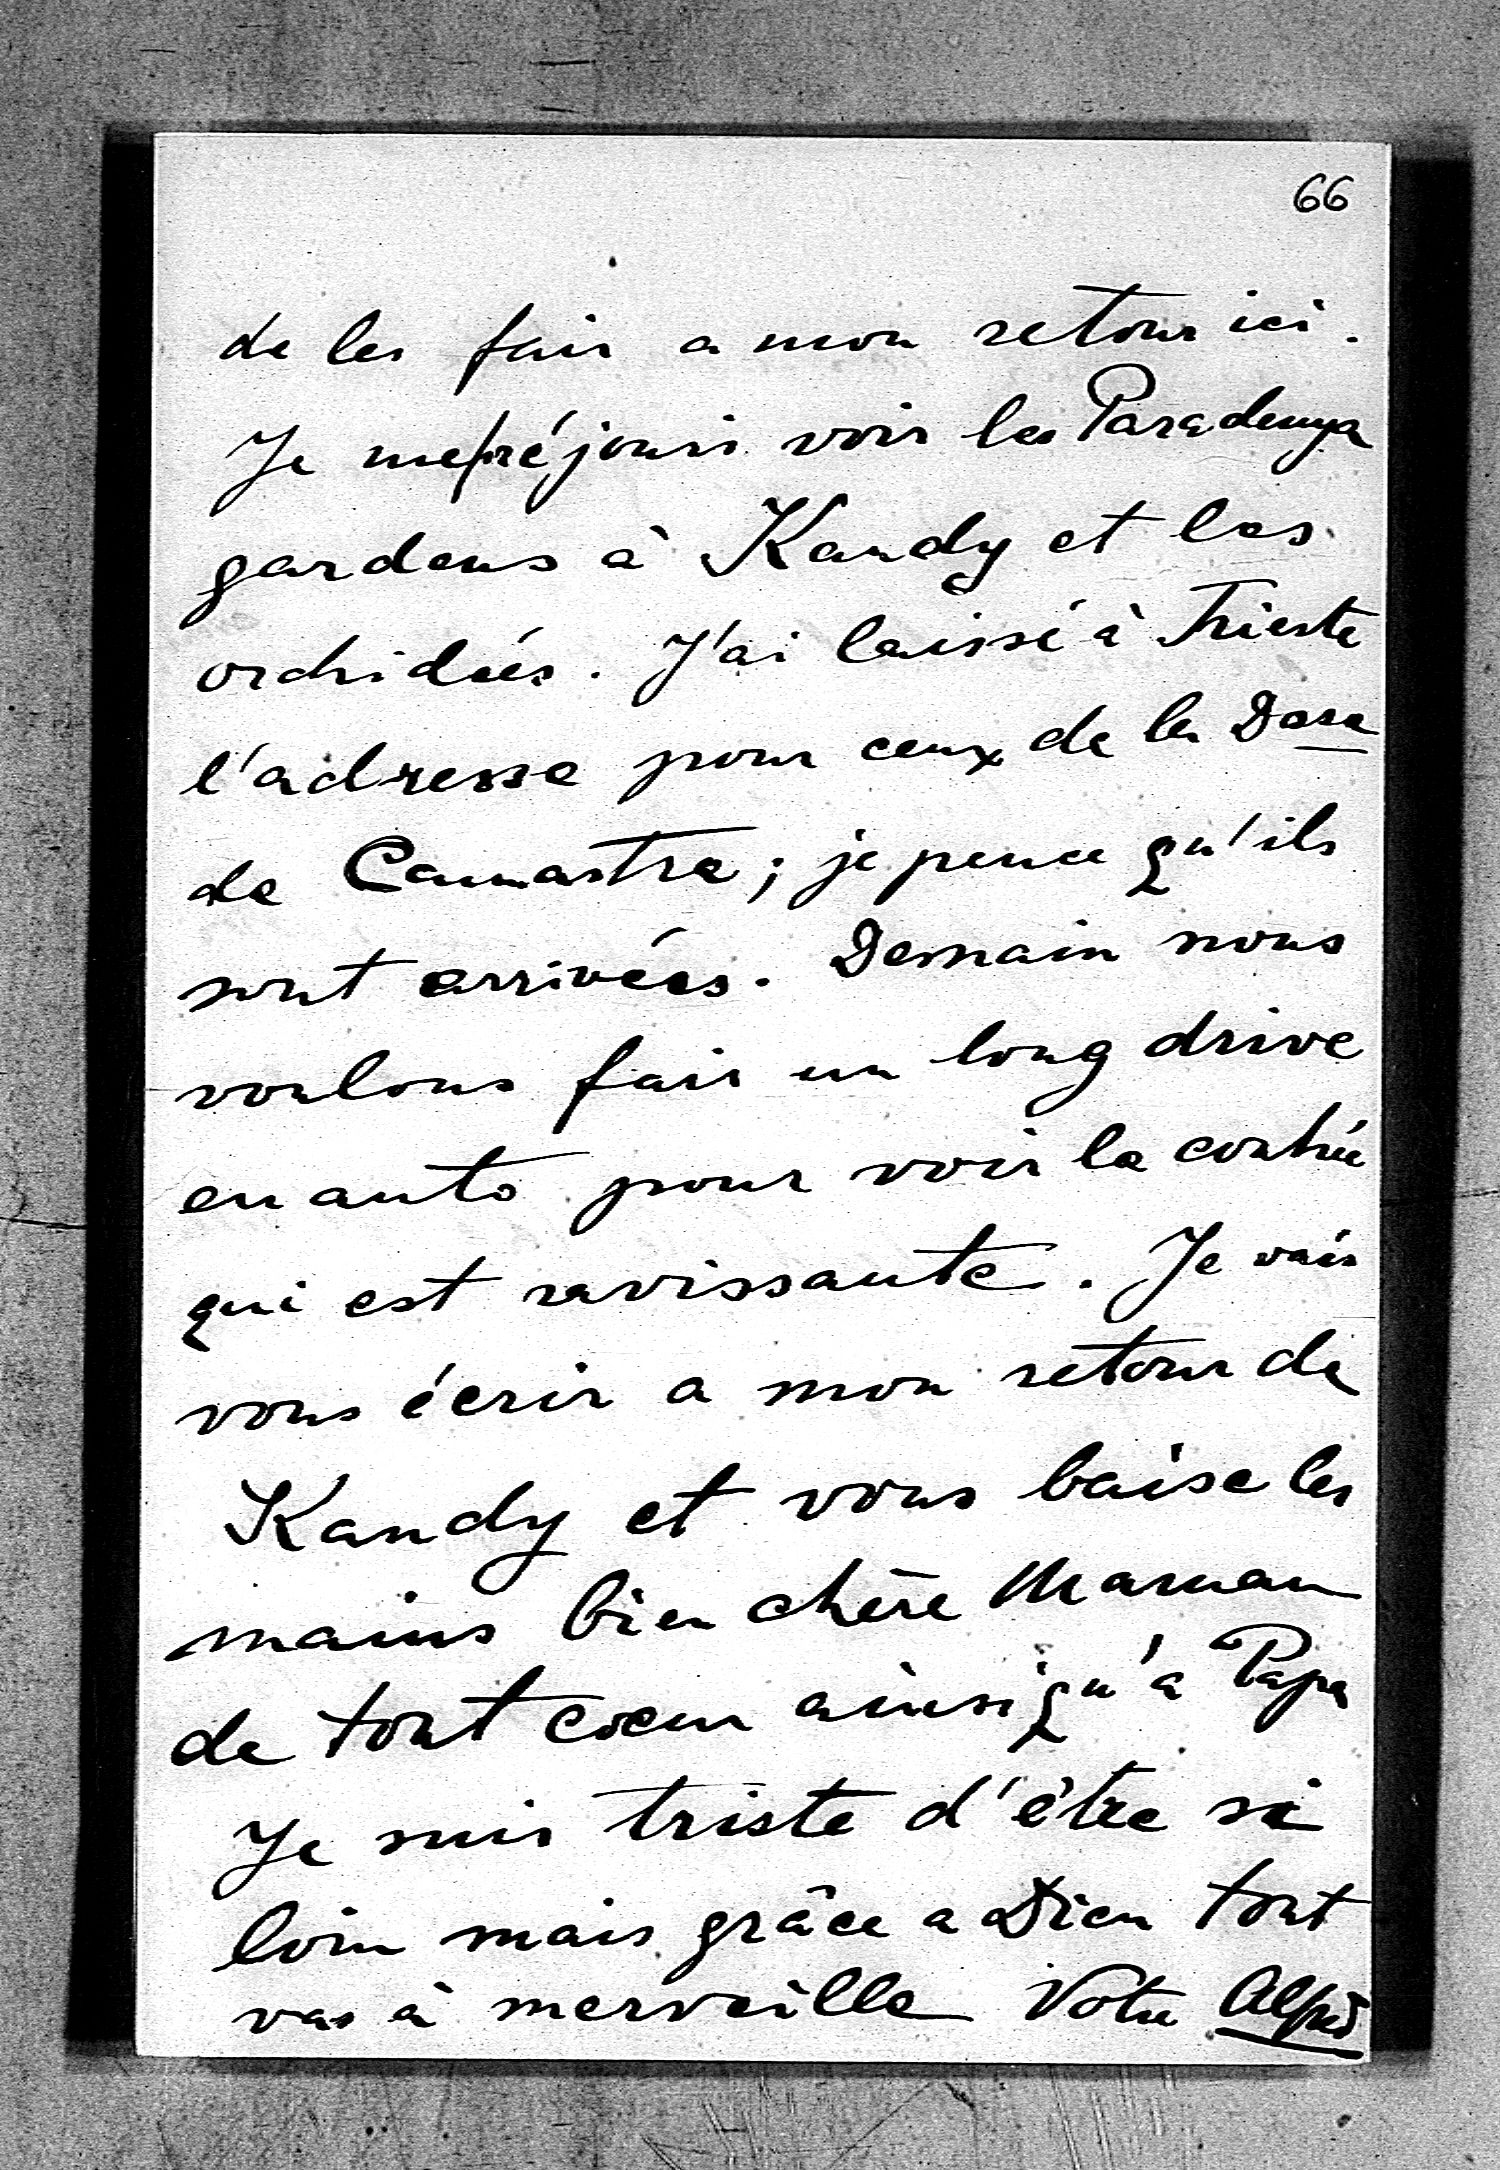 66
de les fair a mon retour ici.
Je me réjouis voir les Paradenya
gardens à Kandy et les
orchidées. J'ai laissé à Trieste
l'adresse pour ceux de la Dsse
de Camastra; je pence qu'ils
sont arrivées. Demain nous
voulons fair un long drive
en auto pour voir la contrée
qui est ravissante. Je vais
vous écrir a mon retour de
Kandy et vous baise les
mains bien chère Maman
de tout coeur ainsi qu'a Papa
Je suis triste d'être si
loin mais grâce a Dieu tout
vas à merveille Votre Alfred